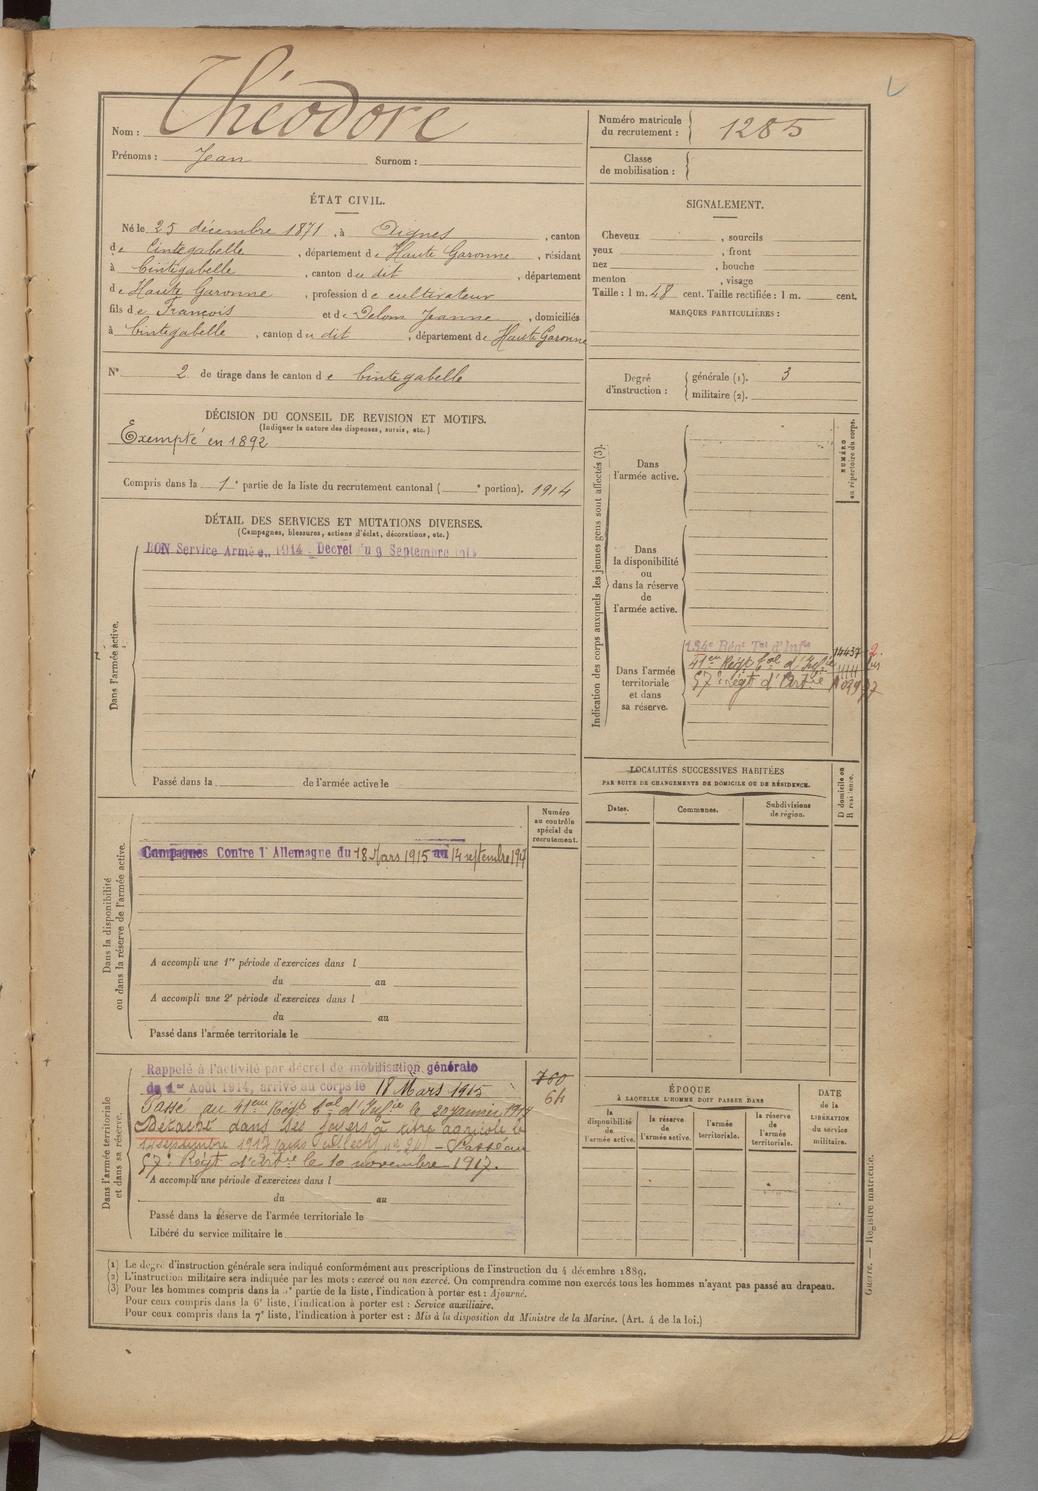 Nom : Théodore
Prénoms : Jean Surnom :
Numéro matricule du recrutement : 1285
Classe de mobilisation :
ÉTAT CIVIL.
Né le 25 décembre 1871, à Aignes, canton
de Cintegabelle, département de Haute Garonne, résidant
à Cintegabelle, canton du dit, département
de Haute Garonne, profession de cultivateur
fils de François et de Delom Jeanne, domiciliés
à Cintegabelle, canton du dit, département de Haute Garonne
N° 2 de tirage dans le canton de Cintegabelle
SIGNALEMENT.
Cheveux , sourcils
yeux , front
nez , bouche
menton , visage
Taille : 1 m. 48 cent. Taille rectifiée : 1 m. cent.
MARQUES PARTICULIÈRES :
Degré d'instruction : générale (1). 3
militaire (2).
DÉCISION DU CONSEIL DE REVISION ET MOTIFS.
(Indiquer la nature des dispenses, sursis, etc.)
Exempté en 1892
Compris dans la 1e partie de la liste du recrutement cantonal ( e portion). 1914
DÉTAIL DES SERVICES ET MUTATIONS DIVERSES.
(Campagnes, blessures, actions d'éclat, décorations, etc.)
Dans l'armée active.
BON Service Armée. 1914. Décret du 9 Septembre 1914
Passé dans la de l'armée active le
Indication des corps auxquels les jeunes gens sont affectés (3).
NUMÉRO au répertoire du corps.
Dans l'armée active.
Dans la disponibilité ou dans la réserve de l'armée active.
Dans l'armée territoriale et dans sa réserve.
134e Régt Tal d'Infie 14437
41eme Régt Cal d'Infie
57e Régt d'Artie
LOCALITÉS SUCCESSIVES HABITÉES
PAR SUITE DE CHANGEMENTS DE DOMICILE OU DE RÉSIDENCE.
Dates. Communes. Subdivisions de région. D domicile ou R résidence.
Dans la disponibilité ou dans la réserve de l'armée active.
Numéro au contrôle spécial du recrutement.
Campagnes Contre l'Allemagne du 18 Mars 1915 au 14 septembre 1917
A accompli une 1re période d'exercices dans l
du au
A accompli une 2e période d'exercices dans l
du au
Passé dans l'armée territoriale le
Dans l'armée territoriale et dans sa réserve.
Rappelé à l'activité par décret de mobilisation générale
du 1er Août 1914, arrivé au corps le 18 Mars 1915
760
64
Passé au 41eme Régt Cal d'Infie le 20 janvier 1917
Détaché dans ses foyers à titre agricole le
14 septembre 1917 – Passé au
57e Régt d'Artie le 10 novembre 1917.
A accompli une période d'exercices dans l
du au
Passé dans la réserve de l'armée territoriale le
Libéré du service militaire le
ÉPOQUE
À LAQUELLE L'HOMME DOIT PASSER DANS
la disponibilité de l'armée active. la réserve de l'armée active. l'armée territoriale. la réserve de l'armée territoriale.
DATE de la LIBÉRATION du service militaire.
(1) Le degré d'instruction générale sera indiqué conformément aux prescriptions de l'instruction du 4 décembre 1889.
(2) L'instruction militaire sera indiquée par les mots : exercé ou non exercé. On comprendra comme non exercés tous les hommes n'ayant pas passé au drapeau.
(3) Pour les hommes compris dans la partie de la liste, l'indication à porter est : Ajourné.
Pour ceux compris dans la 6e liste, l'indication à porter est : Service auxiliaire.
Pour ceux compris dans la 7e liste, l'indication à porter est : Mis à la disposition du Ministre de la Marine. (Art. 4 de la loi.)
Guerre. — Registre matricule.